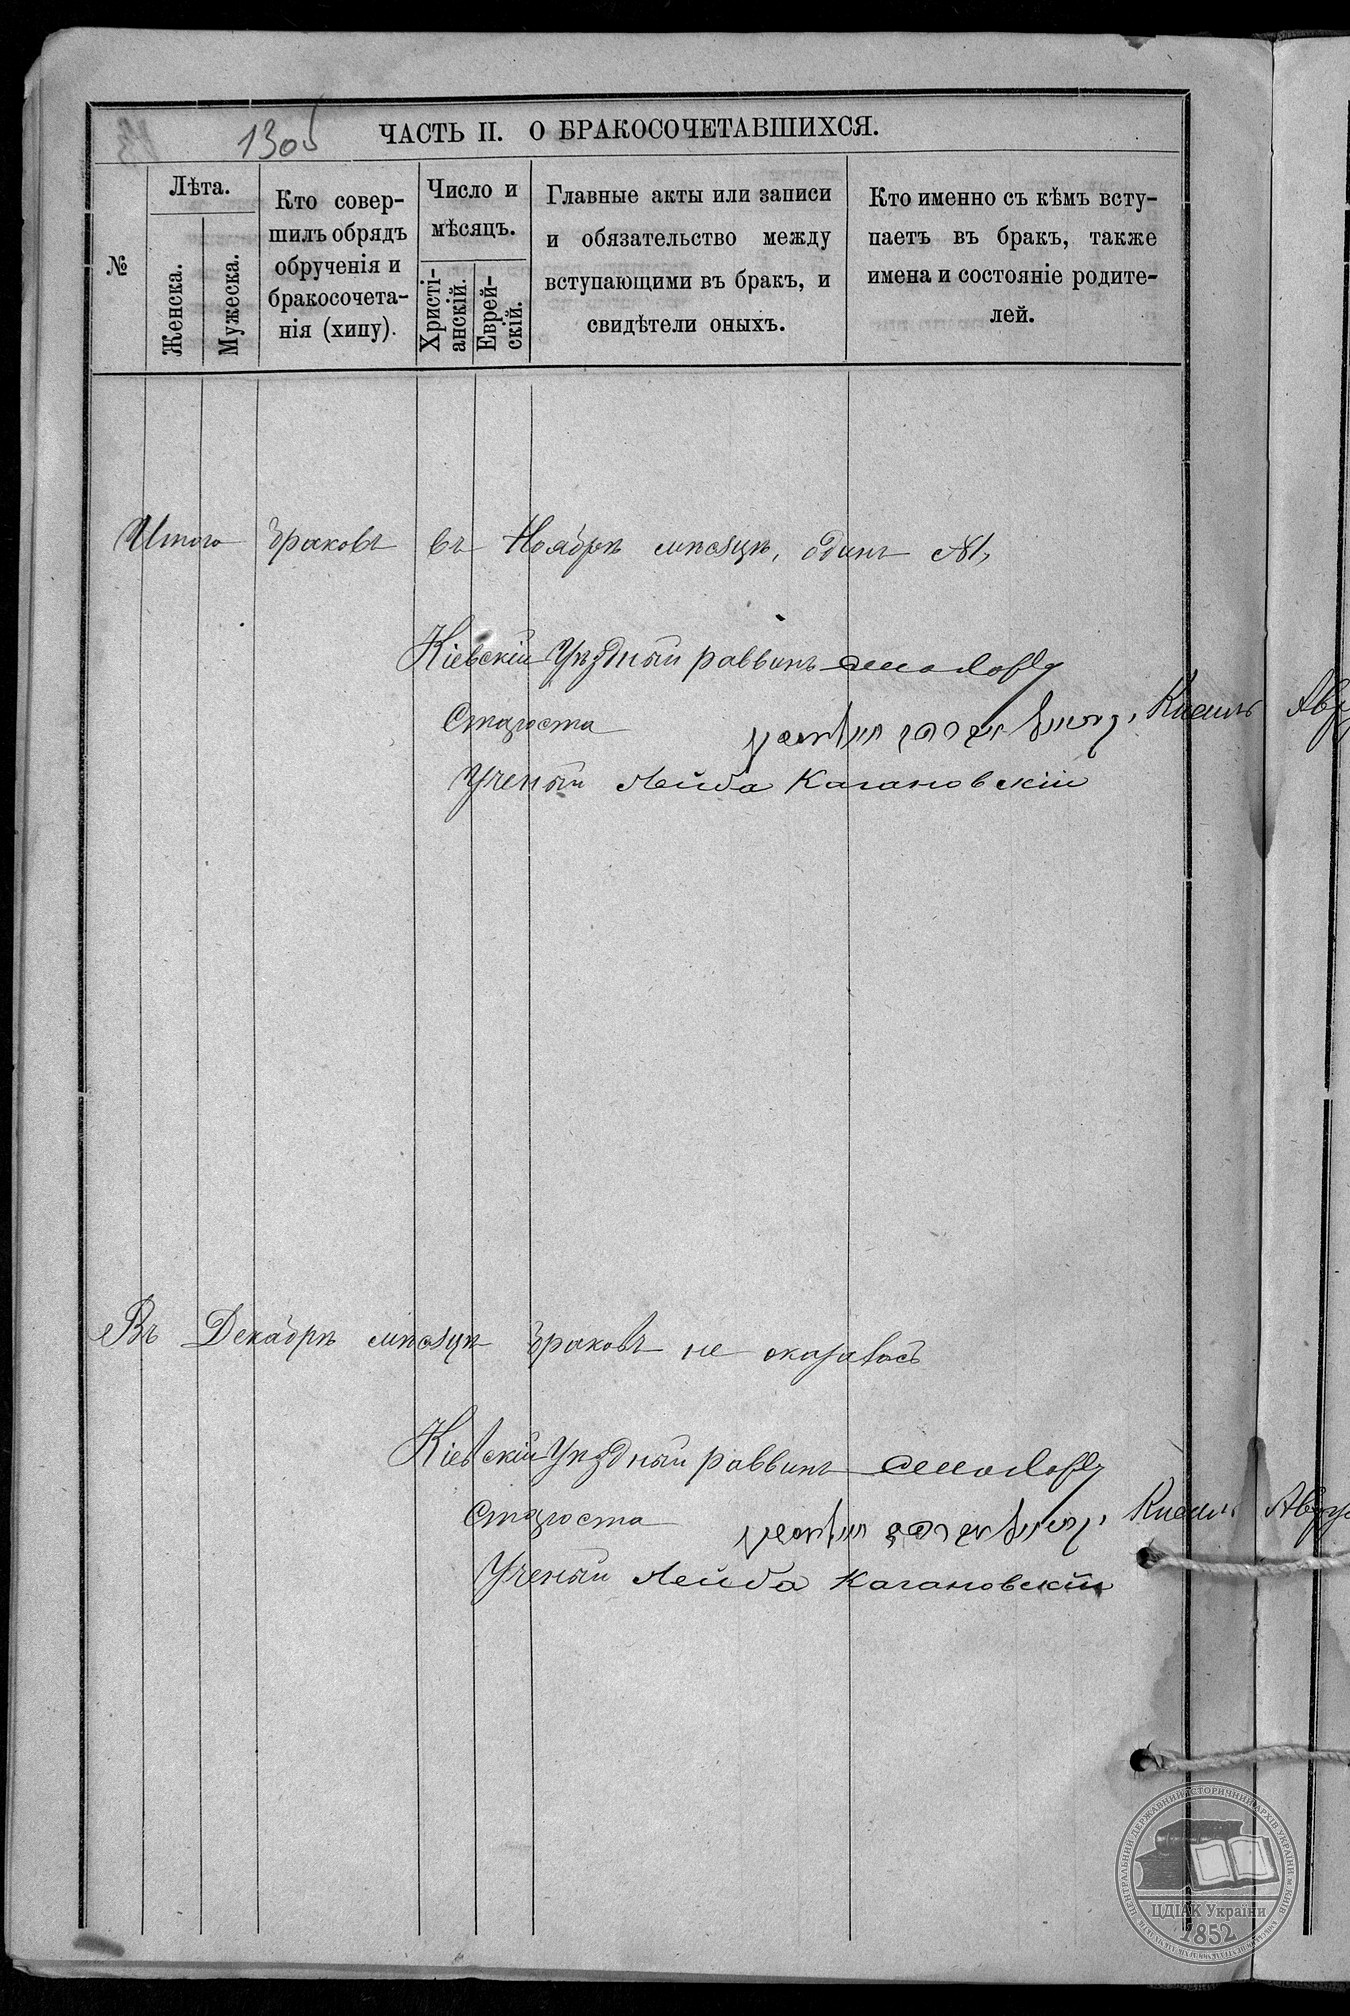 1305
ЧАСТЬ II. О БРАКОСОЧЕТАВШИХСЯ.
№
Лѣта.
Женска.
Мужеска.
Кто совер-
шилъ обрядъ
обрученія и
бракосочета-
нія (хипу).
Число и
мѣсяцъ.
Христі-
анскій.
Еврей-
скій.
Главные акты или записи
и обязательство между
вступающими въ бракъ, и
свидѣтели оныхъ.
Кто именно съ кѣмъ всту-
паетъ въ бракъ, также
имена и состояніе родите-
лей.
Итого браковъ въ Ноябрѣ мѣсяцѣ, одинъ №1,
Кіевскій Уѣздный раввинъ
Староста
Ученый Лейба Кагановскій
Въ Декабрѣ мѣсяцѣ браковъ не оказалось
Кіевскій Уѣздный раввинъ
Староста
Ученый Лейба Кагановскій
ЦЕНТРАЛЬНИЙ ДЕРЖАВНИЙ ІСТОРИЧНИЙ АРХІВ УКРАЇНИ м. КИЇВ
ЦДІАК України
1852